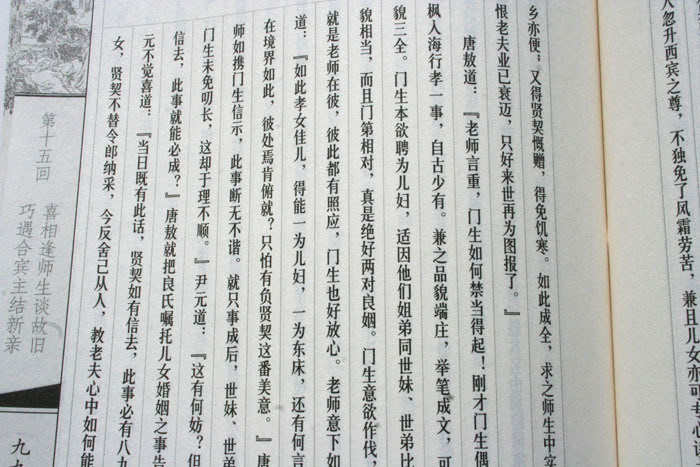 人忽升西宾之尊，不独免了风霜劳苦，兼且儿女亦可专心
乡亦便；又得贤契慨赠，得免饥寒。如此成全，求之师生中实
恨老夫业已衰迈，只好来世再为图报了。』
唐敖道：『老师言重，门生如何禁当得起！刚才门生偶
枫人海行孝一事，自古少有。兼之品貌端庄，举笔成文，可
貌三全。门生本欲聘为儿妇，适因他们姐弟同世妹、世弟比
貌相当，而且门第相对，真是绝好两对良姻。门生意欲作伐，
就是老师在彼，彼此都有照应，门生也好放心。老师意下如
道：『如此孝女佳儿，得能一为儿妇，一为东床，还有何言
在境界如此，彼处焉肯俯就？只怕有负贤契这番美意。』唐
师如携门生信示，此事断无不谐。就只事成后，世妹、世弟
门生未免叨长，这却于理不顺。』尹元道：『这有何妨？但
信去，此事就能必成？』唐敖就把良氏嘱托儿女婚姻之事告
元不觉喜道：『当日既有此话，贤契如有信去，此事必有八九
女，贤契不替令郎纳采，今反舍己从人，教老夫心中如何能
第十五回
喜相逢师生谈故旧
巧遇合宾主结新亲
九